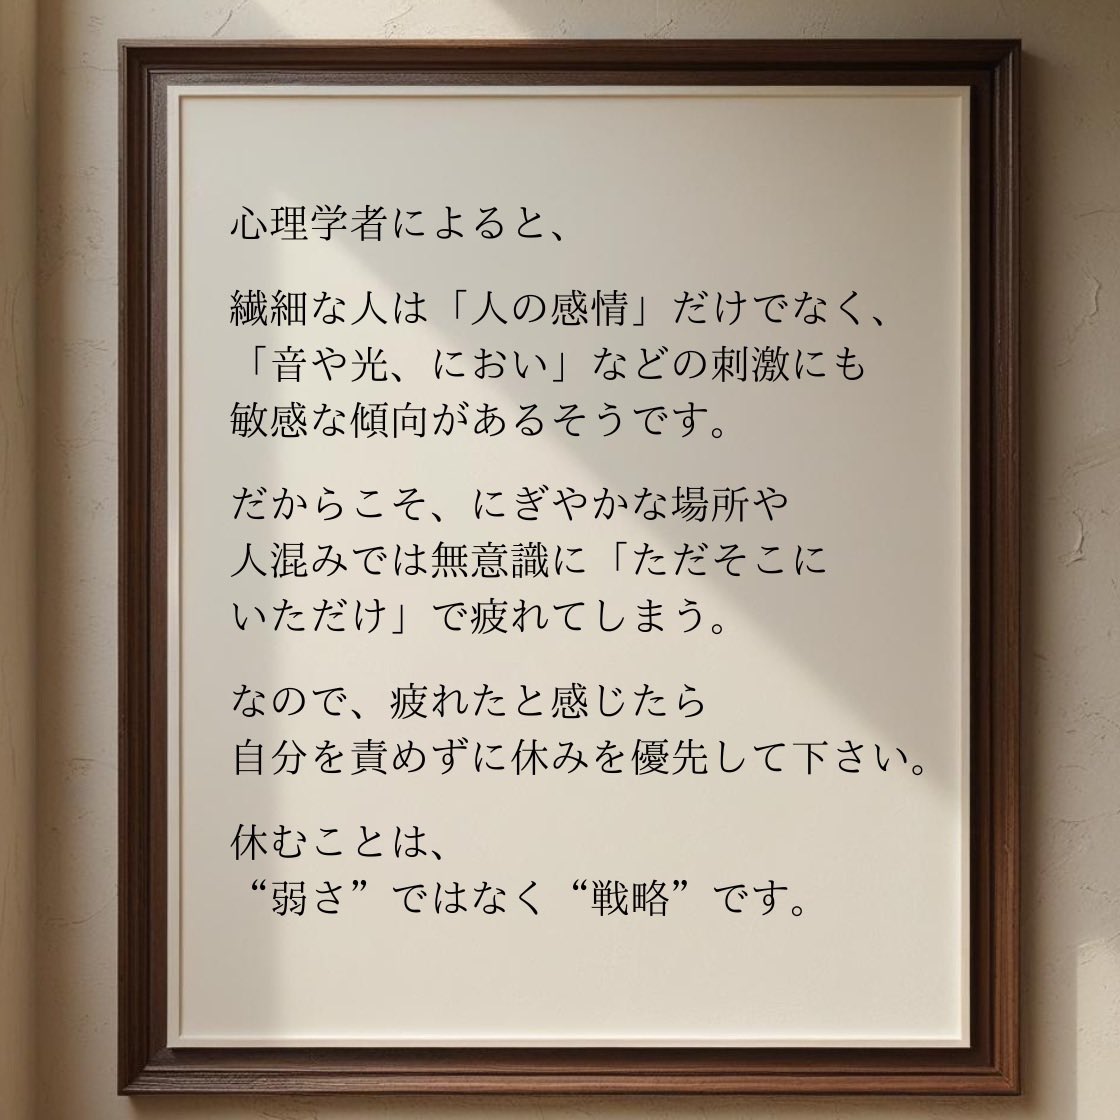 心理学者によると、
繊細な人は「人の感情」だけでなく、
「音や光、におい」などの刺激にも
敏感な傾向があるそうです。
だからこそ、にぎやかな場所や
人混みでは無意識に「ただそこに
いただけ」で疲れてしまう。
なので、疲れたと感じたら
自分を責めずに休みを優先して下さい。
休むことは、
“弱さ”ではなく“戦略”です。